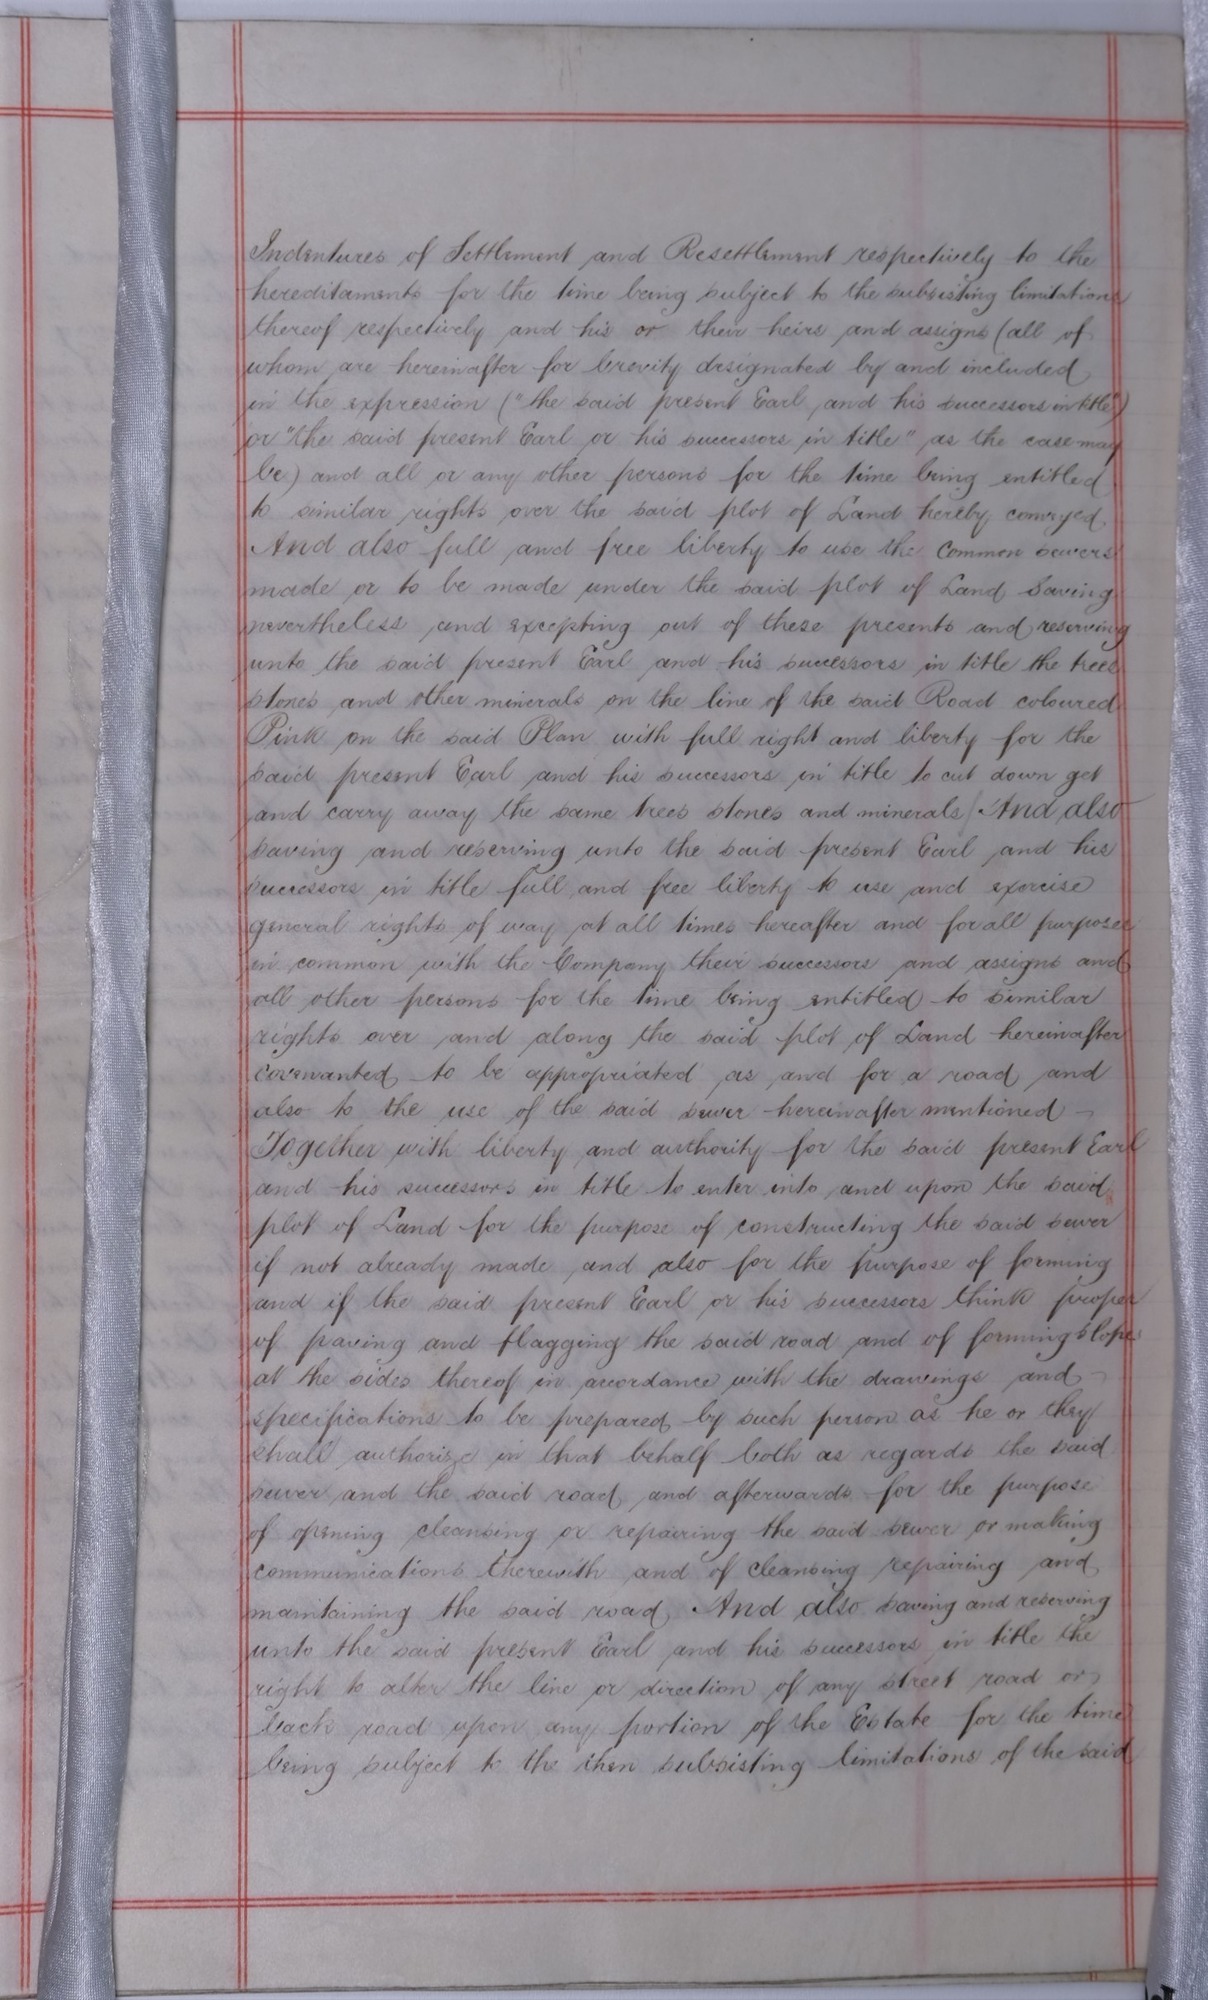 Indentures of Settlement and Resettlement respectively to the
hereditaments for the time being subject to the subsisting limitations
thereof respectively and his or their heirs and assigns (all of
whom are hereinafter for brevity designated by and included
in the expression ("the said present Earl and his successors in title")
or "the said present Earl or his successors in title" as the case may
be) and all or any other persons for the time being entitled
to similar rights over the said plot of Land hereby conveyed
And also full and free liberty to use the Common sewers
made or to be made under the said plot of Land Saving
nevertheless and excepting out of these presents and reserving
unto the said present Earl and his successors in title the trees
stones and other minerals on the line of the said Road coloured
Pink on the said Plan with full right and liberty for the
said present Earl and his successors in title to cut down get
and carry away the same trees stones and minerals / And also
saving and reserving unto the said present Earl and his
successors in title full and free liberty to use and exercise
general rights of way at all times hereafter and for all purposes
in common with the Company their successors and assigns and
all other persons for the time being entitled to similar
rights over and along the said plot of Land hereinafter
covenanted to be appropriated as and for a road and
also to the use of the said sewer hereinafter mentioned -
Together with liberty and authority for the said present Earl
and his successors in title to enter into and upon the said
plot of Land for the purpose of constructing the said sewer
if not already made and also for the purpose of forming
and if the said present Earl or his successors think proper
of paving and flagging the said road and of forming slopes
at the sides thereof in accordance with the drawings and -
specifications to be prepared by such person as he or they
shall authorize in that behalf both as regards the said
sewer and the said road and afterwards for the purpose
of opening cleansing or repairing the said sewer or making
communications therewith and of cleansing repairing and
maintaining the said road And also saving and reserving
unto the said present Earl and his successors in title the
right to alter the line or direction of any street road or
back road upon any portion of the Estate for the time
being subject to the then subsisting limitations of the said